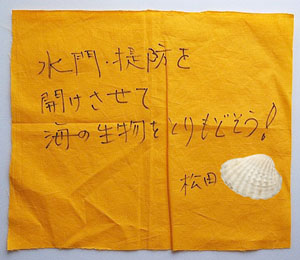 水門・堤防を
開けさせて
海の生物をとりもどそう!
松田